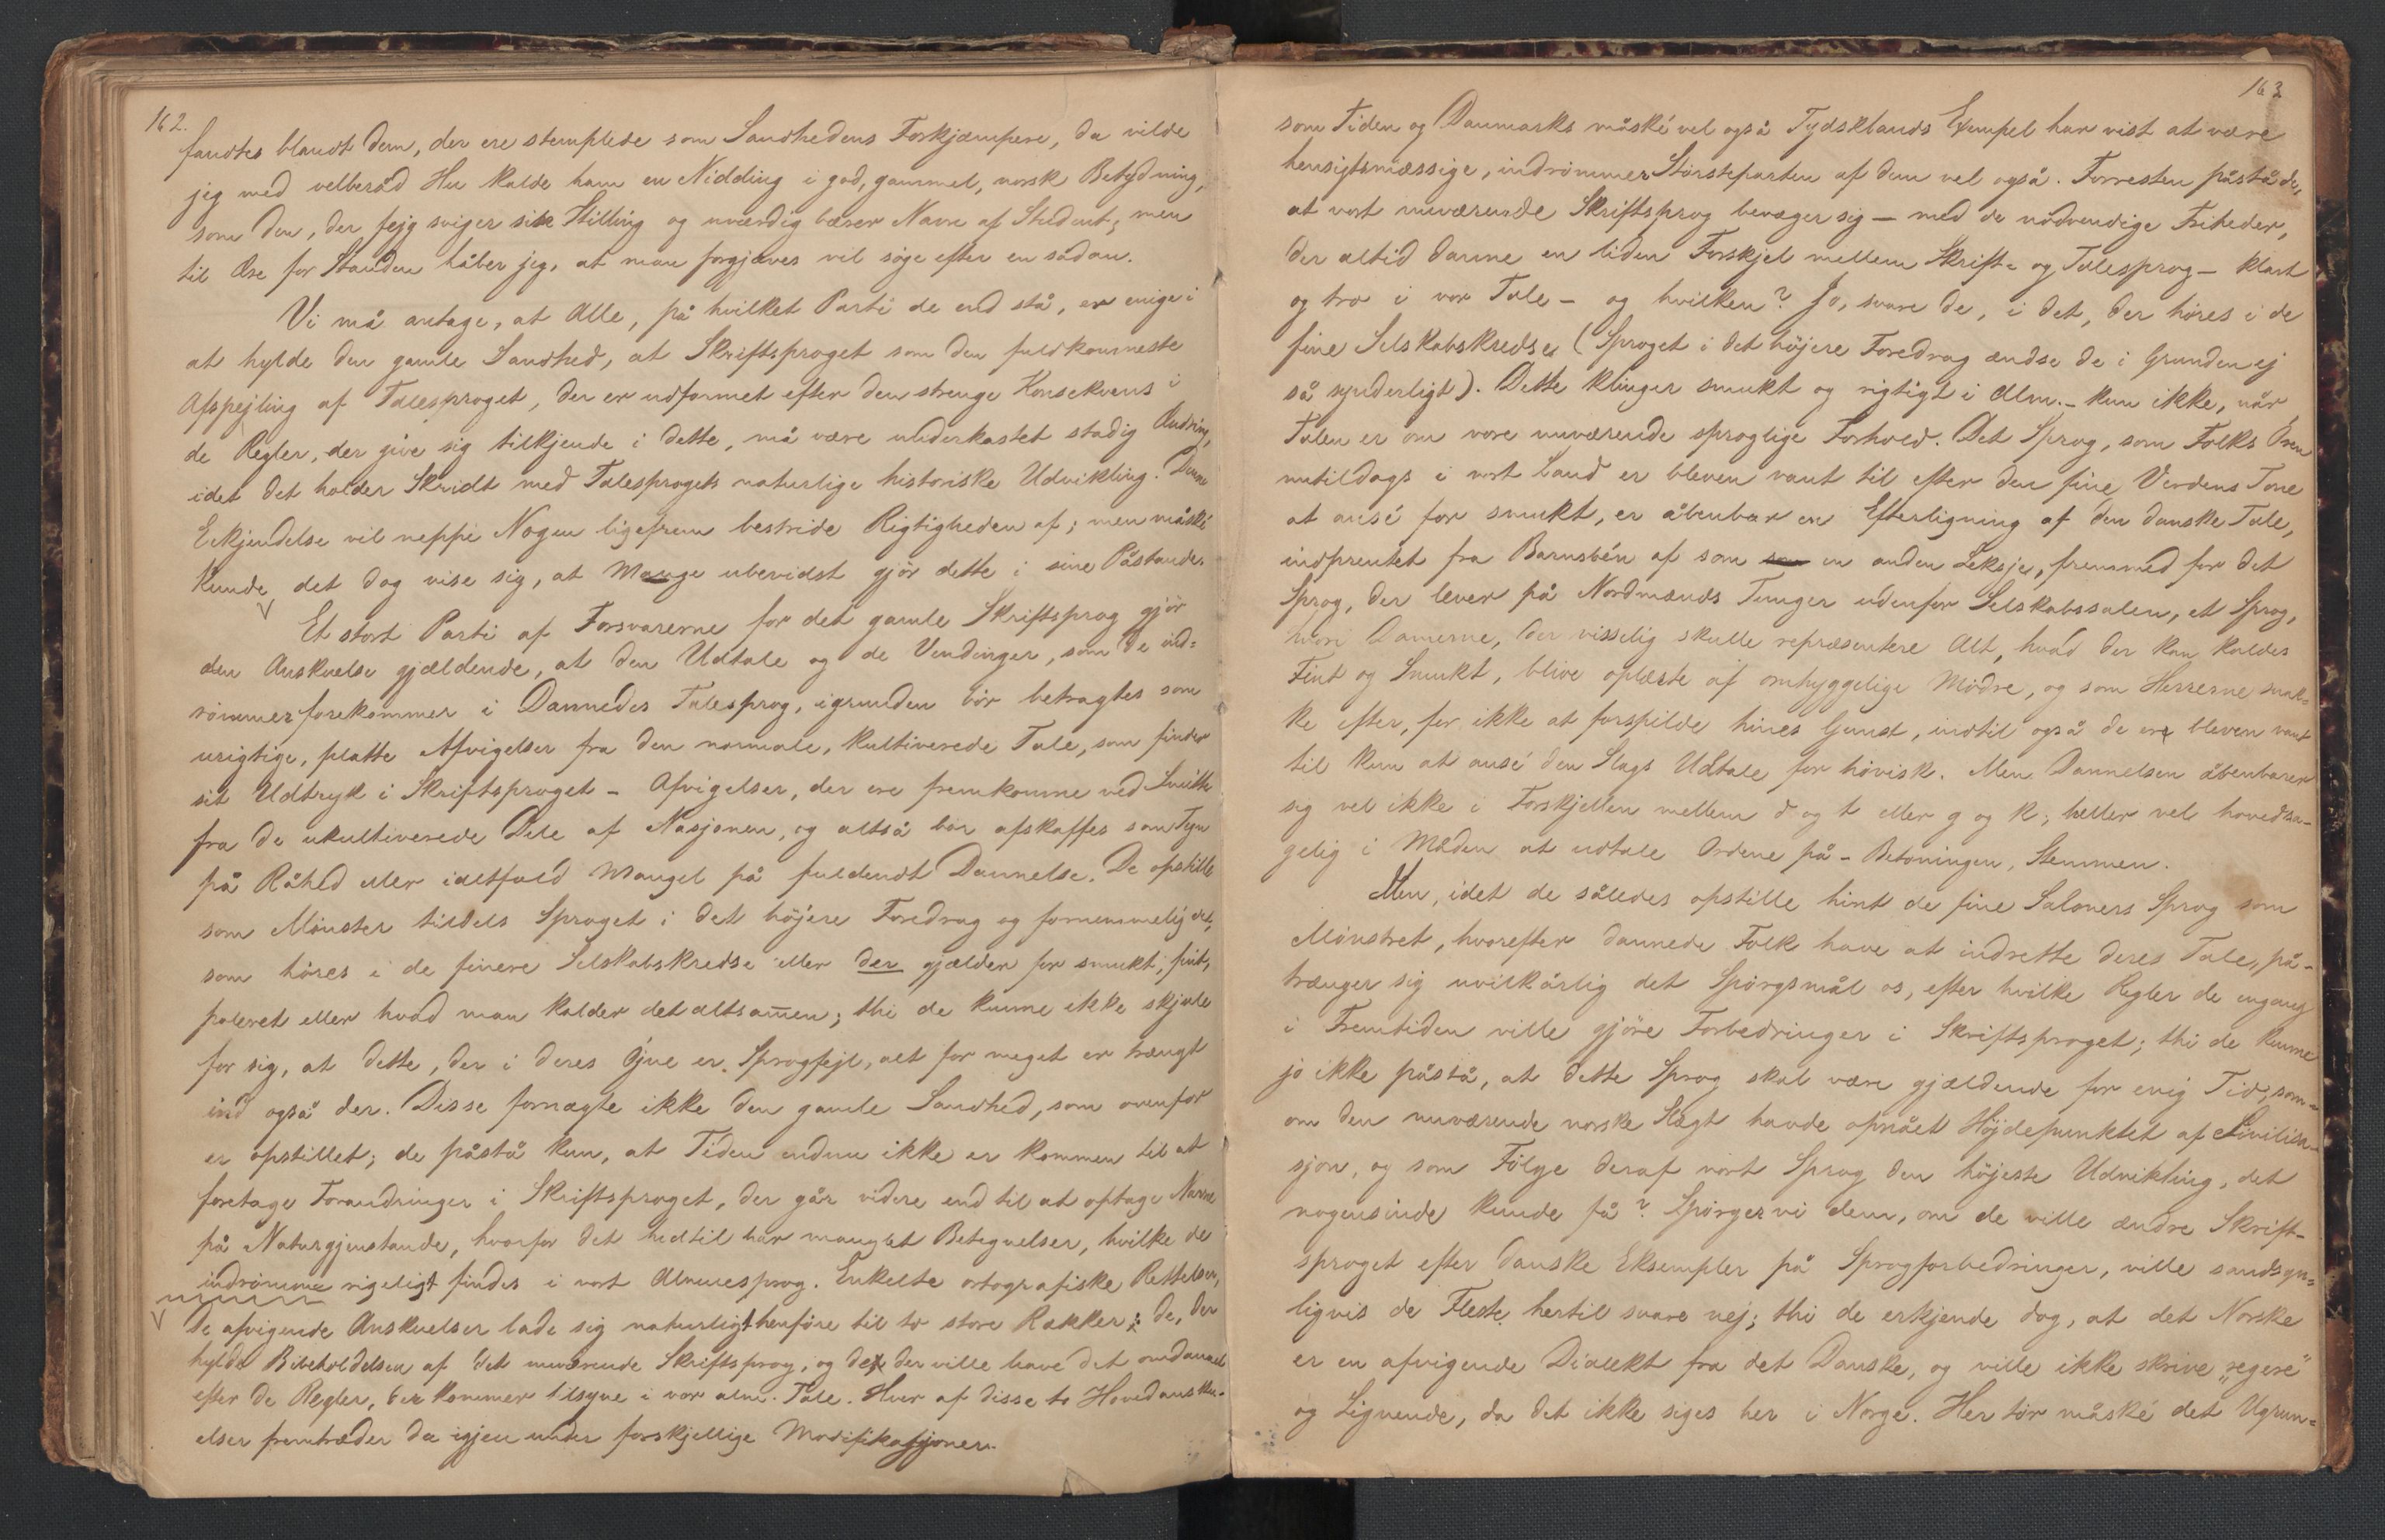 162.
fandtes blandt dem, der ere stemplede som Sandhedens Forkjæmpere, da vilde
jeg med velberåd Hu kalde ham en Nidding i god, gammel, norsk Betydning,
som den, der fejg sviger sin Stilling og uværdig bærer Navn af Student; men
til Ære for Standen håber jeg, at man forgjæves vil söge efter en sådan.
Vi må antage, at Alle, på hvilket Parti de end stå, er enige i
at hylde den gamle Sandhed, at Skriftsproget som den fuldkomneste
Afspejling af Talesproget, der er udformet efter den strenge Konsekvens i
de Regler, der give sig tilkjende i dette, må være underkastet stadig Ændring,
idet det holder Skridt med Talesprogets naturlige historiske Udvikling. Denne
Erkjendelse vil neppe Nogen ligefrem bestride Rigtigheden af; men måské
kunde det dog vise sig, at Mange ubevidst gjör dette i sine Påstande.
Et stort Parti af Forsvarerne for det gamle Skriftsprog gjör
den Anskuelse gjældende, at den Udtale og de Vendinger, som de ind-
römmer forekommer i Dannedes Talesprog, igrunden bör betragtes som
urigtige, platte Afvigelser fra den normale, kultiverede Tale, som finder
sit Udtryk i Skriftsproget - Afvigelser, der ere fremkomne ved Smitte
fra de ukultiverede Dele af Nasjonen, og altså bör afskaffes som Tegn
på Råhed eller ialtfald Mangel på fuldendt Dannelse. De opstille
som Mönster tildels Sproget i det höjere Foredrag og fornemmelig det,
som höres i de finere Selskabskredse eller der gjælder for smukt, fint,
poleret eller hvad man kalder det altsam̄en; thi de kunne ikke skjule
for sig, at dette, der i deres Öjne er Sprogfejl, alt for meget er trængt
ind også der. Disse fornægte ikke den gamle Sandhed, som ovenfor
er opstillet; de påstå kun, at Tiden endnu ikke er kommen til at
foretage Forandringer i Skriftsproget, der går videre end til at optage Navne
på Naturgjenstande, hvorfor det hidtil har manglet Betegnelser, hvilke de
indrömme rigeligt findes i vort Almuesprog. Enkelte ortografiske Rettelser,
De afvigende Anskuelser lade sig naturligt henföre til to store Rækker: de, der
hylde Bibeholdelsen af det nuværende Skriftsprog, og de, der ville have det omdannet
efter de Regler, der kommer tilsyne i vor alm. Tale. Hver af disse to Hovedansku-
elser fremtræder da igjen under forskjellige Modifikasjoner.
163
som Tiden og Danmarks måské vel også Tydsklands Exempel har vist at være
hensigtsmæssige, indrömmer Störsteparten af dem vel også. Forresten påstå de,
at vort nuværende Skriftsprog bevæger sig – med de nödvendige Friheder,
der altid danne en liden Forskjel mellem Skrift- og Talesprog – klart
og tro i vor Tale – og hvilken? Jo, svare de, i det, der höres i de
fine Selskabskredse (Sproget i det höjere Foredrag ændse de i Grunden ej
så synderligt). Dette klinger smukt og rigtigt i Alm. – kun ikke, når
Talen er om vore nuværende sproglige Forhold. Det Sprog, som Folks Øren
nutildags i vort Land er bleven vant til efter den fine Verdens Tone
at ansé for smukt, er åbenbar en Efterligning af den danske Tale,
indprentet fra Barnsbén af som en anden Leksje, fremmed for det
Sprog, der lever på Nordmænds Tunger udenfor Selskabssalen, et Sprog,
hvori Damerne, der visselig skulle repræsentere Alt, hvad der kan kaldes
Fint og Smukt, blive oplærte af omhyggelige Mödre, og som Herrerne snak-
ke efter, for ikke at forspilde hines Gunst, indtil også de ere bleven vant
til kun at ansé den Slags Udtale for hövisk. Men Dannelsen åbenbarer
sig vel ikke i Forskjellen mellem d og t eller g og k; heller vel hovedsa-
gelig i Måden at udtale Ordene på – Betoningen, Stemmen.
Men, idet de således opstille hint de fine Saloners Sprog som
Mönstret, hvorefter dannede Folk have at indrette deres Tale, på-
trænger sig uvilkårlig det Spörgsmål os, efter hvilke Regler de engang
i Fremtiden ville gjöre Forbedringer i Skriftsproget; thi de kunne
jo ikke påstå, at dette Sprog skal være gjældende for evig Tid, som-
om den nuværende norske Slægt havde opnået Höjdepunktet af Civilisa-
sjon, og som Fölge deraf vort Sprog den höjeste Udvikling, det
nogensinde kunde få? Spörger vi dem, om de ville ændre Skrift-
sproget efter danske Eksempler på Sprogforbedringer, ville sandsyn-
ligvis de Fleste hertil svare nej; thi de erkjende dog, at det Norske
er en afvigende Dialekt fra det Danske, og ville ikke skrive „regere"
og Lignende, da det ikke siges her i Norge. Her tör måské det Ugrun-